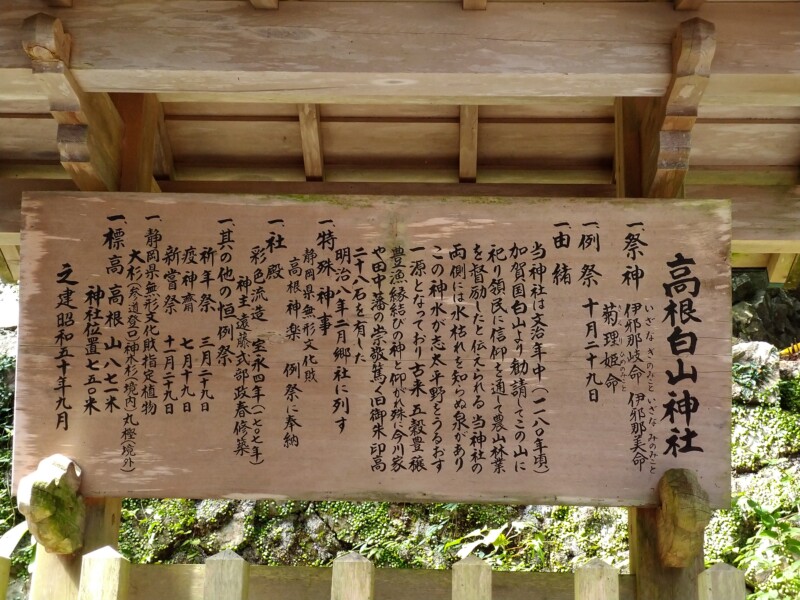 高根白山神社
一、祭神 伊邪那岐命 伊邪那美命
いざなぎのみこと いざなみのみこと
菊理姫命
一、例祭 十月二十九日
一、由緒
当神社は文治年中(一一八〇年頃)
加賀国白山より勧請してこの山に
祀り領民に信仰を通て農山林業
を督励したと伝えられる 当神社の
両側には水枯れを知らぬ泉があり
この神水が志太平野をうるおす
一源となっており古来五穀豊穣
豊漁縁結びの神と仰がれ殊に今川家
や田中藩の崇敬篤く旧御朱印高
二十八石を有した
明治八年二月郷社に列す
一、特殊神事
静岡県無形文化財
高根神楽 例祭に奉納
一、社殿
彩色流造 宝永四年(一七〇七年)
神主遠藤式部政春修築
一、其の他の恒例祭
祈年祭 三月二十九日
疫神齋 七月十日
新嘗祭 十一月二十九日
一、静岡県無形文化財指定植物
大杉(参道登口神木杉境内)丸樫(境外)
一、標高 高根山 八七〇米
神社位置七五〇米
之建昭和五十年九月